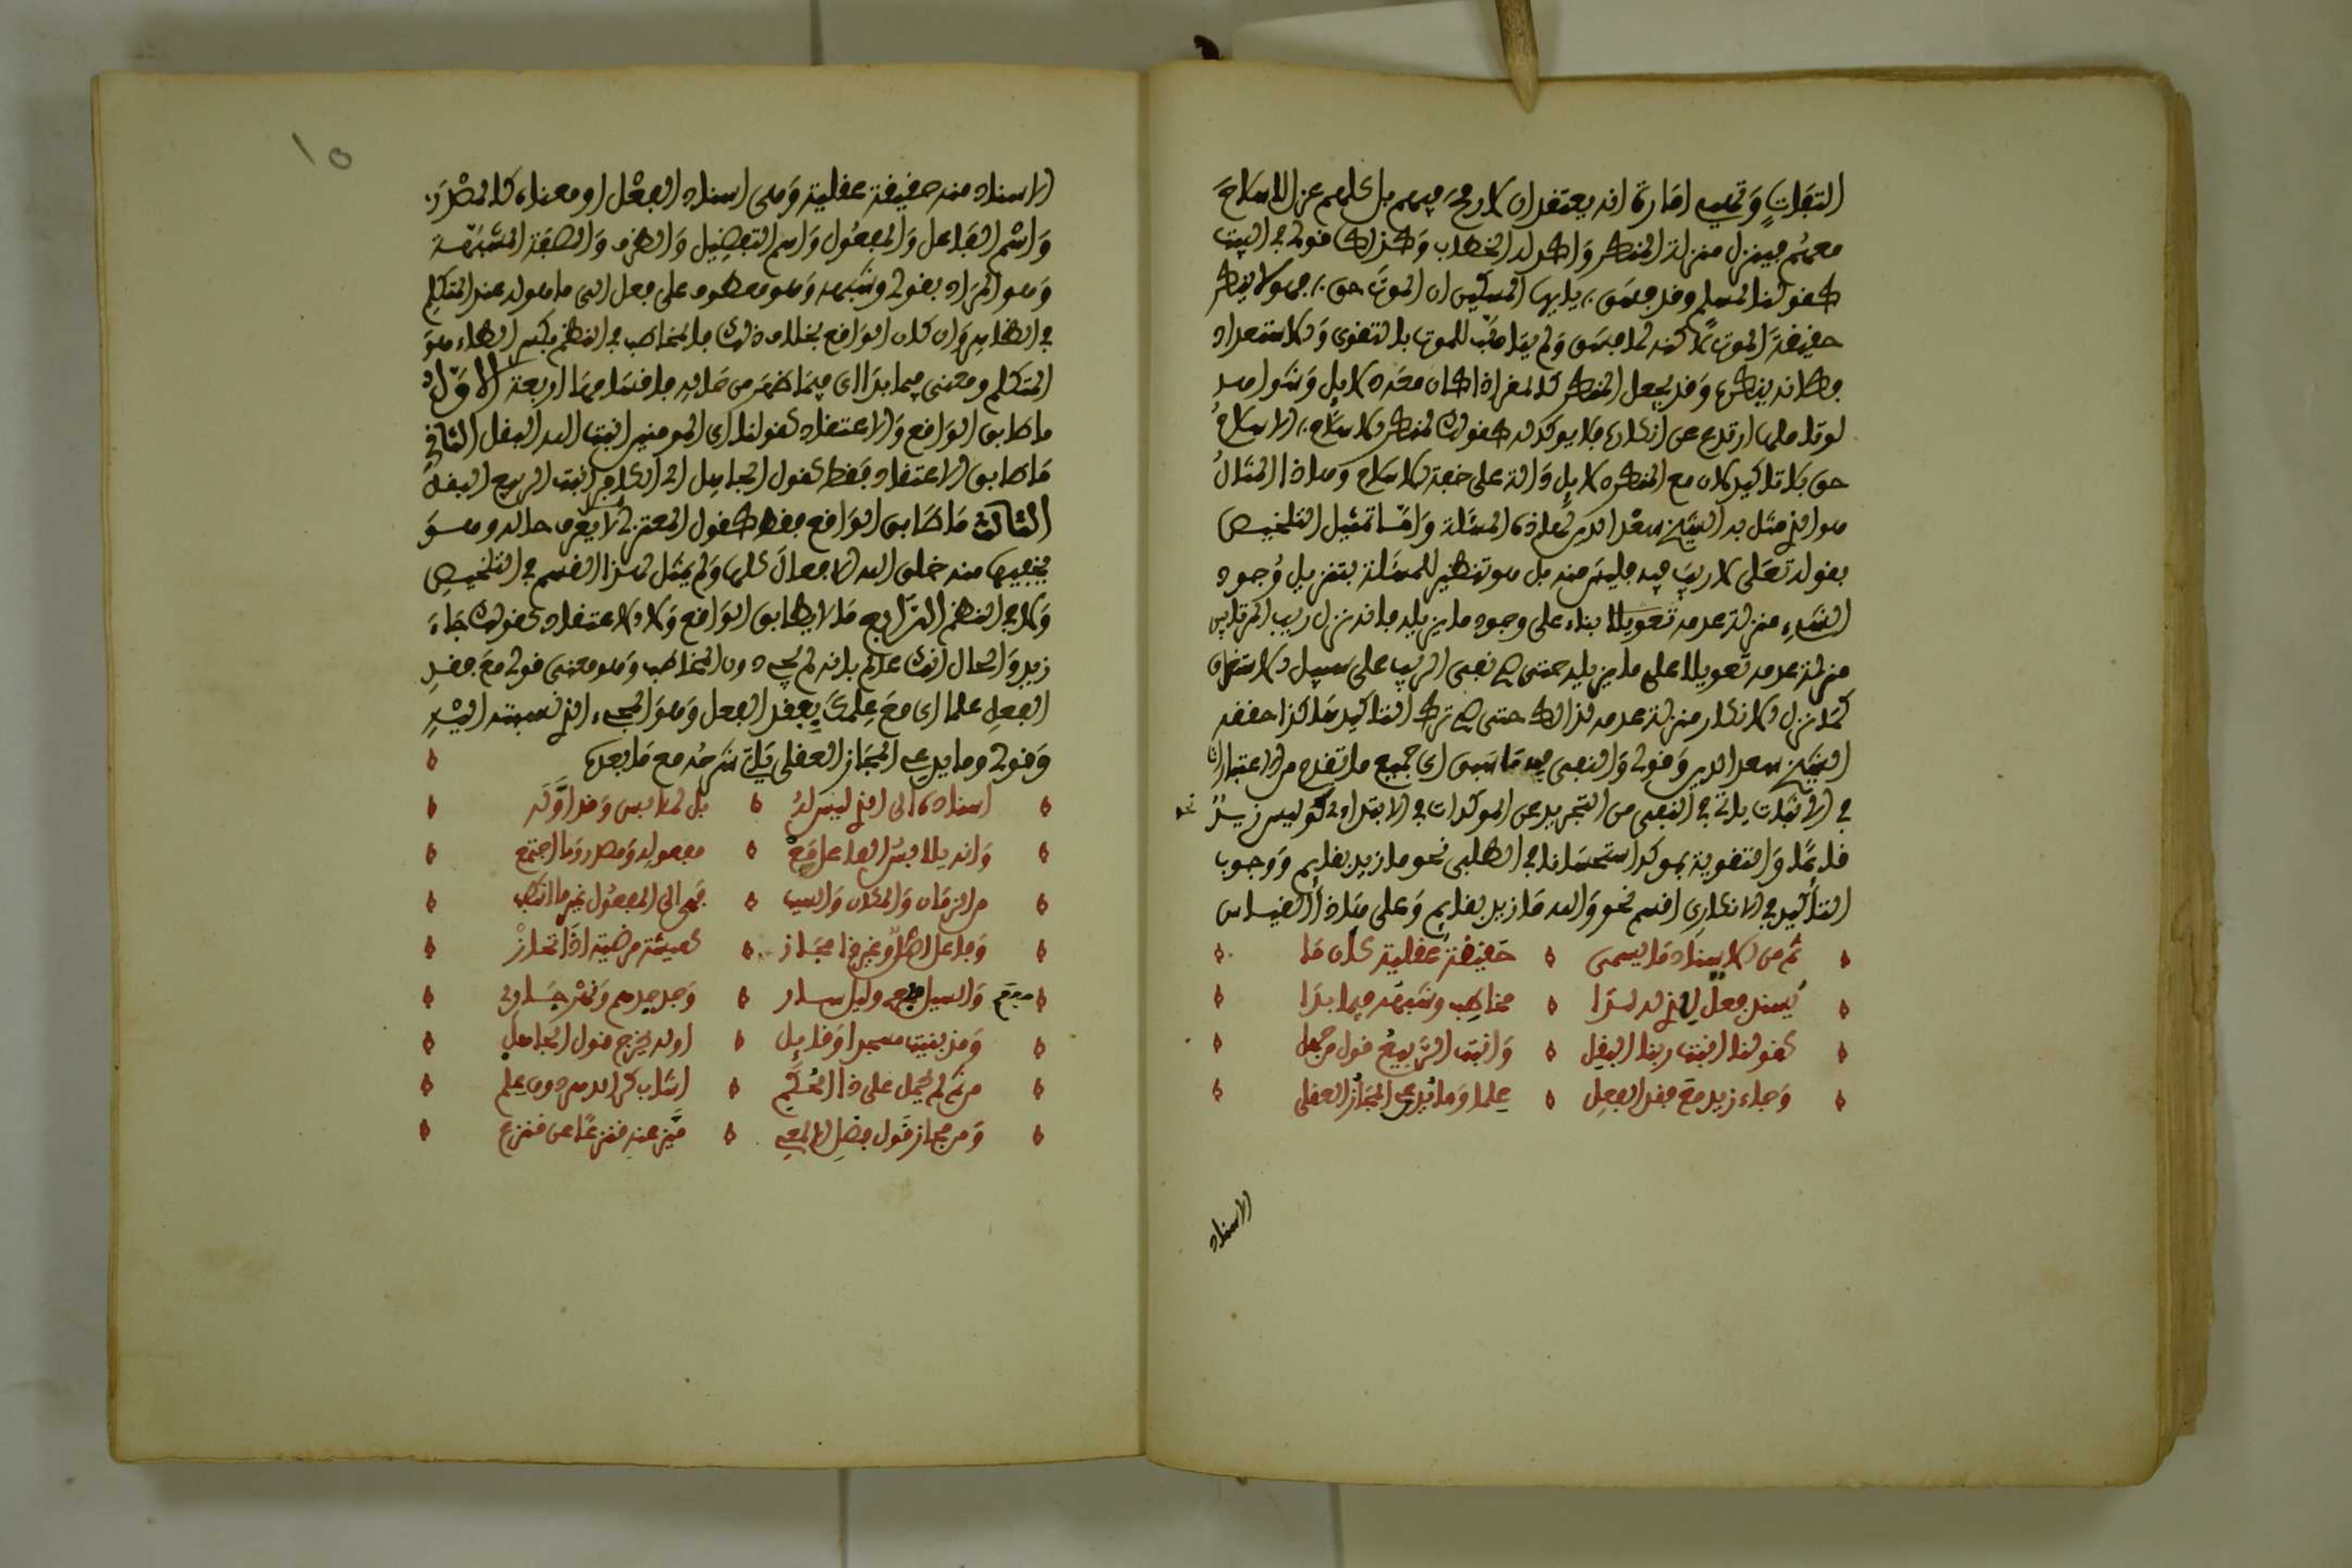 التفات وتهيب امارة انه يعتقد ان لا رمح فيهم بل كلهم عزل لا سلاح
معهم فينزل منزلة المنكر واكد له الخطاب وكذلك قوله في البيت
كقولنا لمسلم وقد فسق يا ايها المسكين ان الموت حق فهو لا ينكر
حقيقة الموت لكنه لما فسق ولم يتاهب للموت بالتقوى والاستعداد
فكانه ينكرها وقد يجعل المنكر كالمقر اذا كان معه دلايل وشواهد
لو تاملها ارتدع عن انكاره فلا يوكد له كقولك لمنكر الاسلام الاسلام
حق بلا تاكيد لان مع المنكر دلايل دالة على حقية الاسلام وهذا المثال
هو الذي مثل به الشيخ سعد الدين لهاذه المسئلة واما تمثيل التلخيص
بقوله تعلى لا ريب فيه فليس منه بل هو تنظير للمسئلة بتنزيل وجود
الشيء منزلة عدمه تعويلا بناء على وجود ما يزيله فانه نزل ريب المرتابين
منزلة عدمه تعويلا على ما يزيله حتى صح نفي الريب على سبيل الاستغراق
كما نزل الانكار منزلة عدمه لذالك حتى صح ترك التاكيد هاكذا حققه
الشيخ سعد الدين وقوله والنفي فيه ما سبق اي جميع ما تقدم من الاعتبارات
في الاثبات ياتي في النفي من التجريد عن الموكدات في الابتداي نحو ليس زيد
قايما والتقوية بموكد استحسانا في الطلبي نحو ما زيد بقايم ووجوب
التاكيد في الانكاري اقسم نحو والله ما زيد بقايم وعلى هاذا القياس
ثم من الاسناد ما يسمى حقيقة عقلية كان ما
يسند فعل للذي له لدا مخاطب وشبهه فيما بدا
كقولنا انبت ربنا البقل وانبت الربيع قول من جهل
وجاء زيد مع فقد الفعل علما وما يدعى المجاز العقلي
الاسناد
الاسناد منه حقيقة عقلية وهي اسناد الفعل او معناه كالمصدر
واسم الفاعل والمفعول واسم التفضيل والظرف والصفة المشبهة
وهو المراد بقوله وشبهه وهو معطوف على فعل الى ما هو له عند المتكلم
في الظاهر وان كان الواقع بخلاف ذلك فالمخاطب في النظم بكسر الطاء هو
المتكلم ومعنى فيما بدا اي فيما ظهر من حاله فاقسامها اربعة الاول
ما طابق الواقع والاعتقاد كقولنا اي المومنين انبت الله البقل الثاني
ما طابق الاعتقاد فقط كقول الجاهل اي الكافر انبت الربيع البقل
الثالث ما طابق الواقع فقط كقول المعتزلي لمن لا يعرف حاله وهو
يخفيها منه خلق الله الافعال كلها ولم يمثل لهذا القسم في التلخيص
ولا في النظم الرابع ما لا يطابق الواقع ولا الاعتقاد كقولك جاء
زيد والحال انك عالم بانه لم يجئ دون المخاطب وهو معنى قوله مع فقد
الفعل علما اي مع علمك بفقد الفعل وهو المجيء الذي نسبته اليه
وقوله وما يدعى المجاز العقلي ياتي شرحه مع ما بعدها
اسناده الى الذي ليس له بل لملابس وقد اوله
وانه يلابس الفاعل مع مفعوله ومصدر وما اجتمع
من الزمان والمكان والسبب فهو الى المفعول غير ما انتصب
وفاعل اصل وغير ذا مجاز كعيشة مرضية اذا تحاز
والسيل مفعم وليل سار وجد جدهم ونهر جار
مفعم
وقد بنيت مسجدا وقايل اوله يخرج قول الجاهل
من ثم لم يحمل على ذا الحكم اشاب كر الدهر دون علم
ومن مجاز قول فضل الالمعي ميز عنه قنزعا عن قنزع